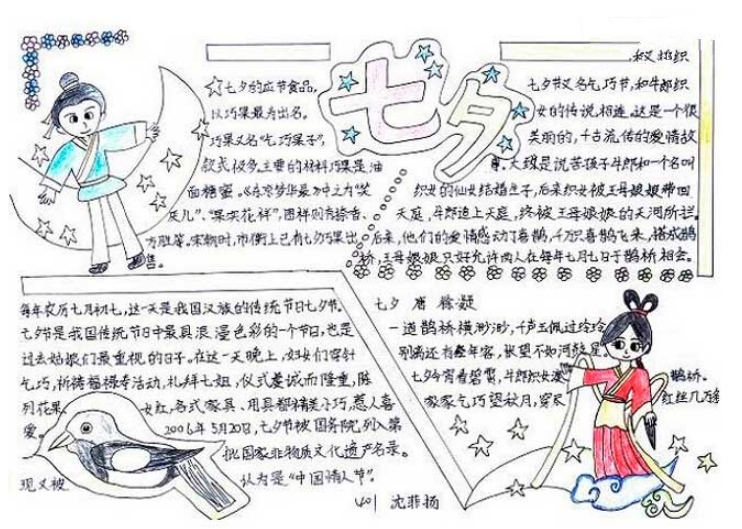 七夕
☆七夕的应节食品,
以巧果最为出名。
巧果又名"乞巧果子",
款式极多。主要的材料巧果是油
面糖蜜。《东京梦华录》中之为"笑
厌儿"、"果实花样",图样则有捺香、
方胜等。宋朝时,市街上已有七夕巧果出
售。
和又名织
七夕节又名乞巧节,和牛郎织
女的传说相连。这是一个很
美丽的,千古流传的爱情故
事。大致是说苦孩子牛郎和一个名叫
织女的仙女结婚生子,后来织女被王母娘娘带回
天庭,牛郎追上天庭,终被王母娘娘的天河所拦。
后来,他们的爱情感动了喜鹊,千万只喜鹊飞来,搭成鹊
桥,王母娘娘只好允许两人在每年七月七日于鹊桥相会。
每年农历七月初七,这一天是我国汉族的传统节日七夕节。
七夕节是我国传统节日中最具浪漫色彩的一个节日,也是
过去姑娘们最重视的日子。在这一天晚上,妇女们穿针
乞巧,祈祷福禄寿活动,礼拜七姐,仪式虔诚而隆重,陈
列花果 女红,各式家具、用具都精美小巧,惹人喜
爱。 2006年5月20日,七夕节被国务院列入第
批国家非物质文化遗产名录。
现又被 认为是"中国情人节"。
七夕 唐 徐凝
一道鹊桥横渺渺,千声玉佩过玲玲
别离还有经年客,怅望不如河鼓星。
七夕今宵看碧霄,牛郎织女渡 鹊桥。
家家乞巧望秋月,穿尽 红丝几万条
401 沈菲扬